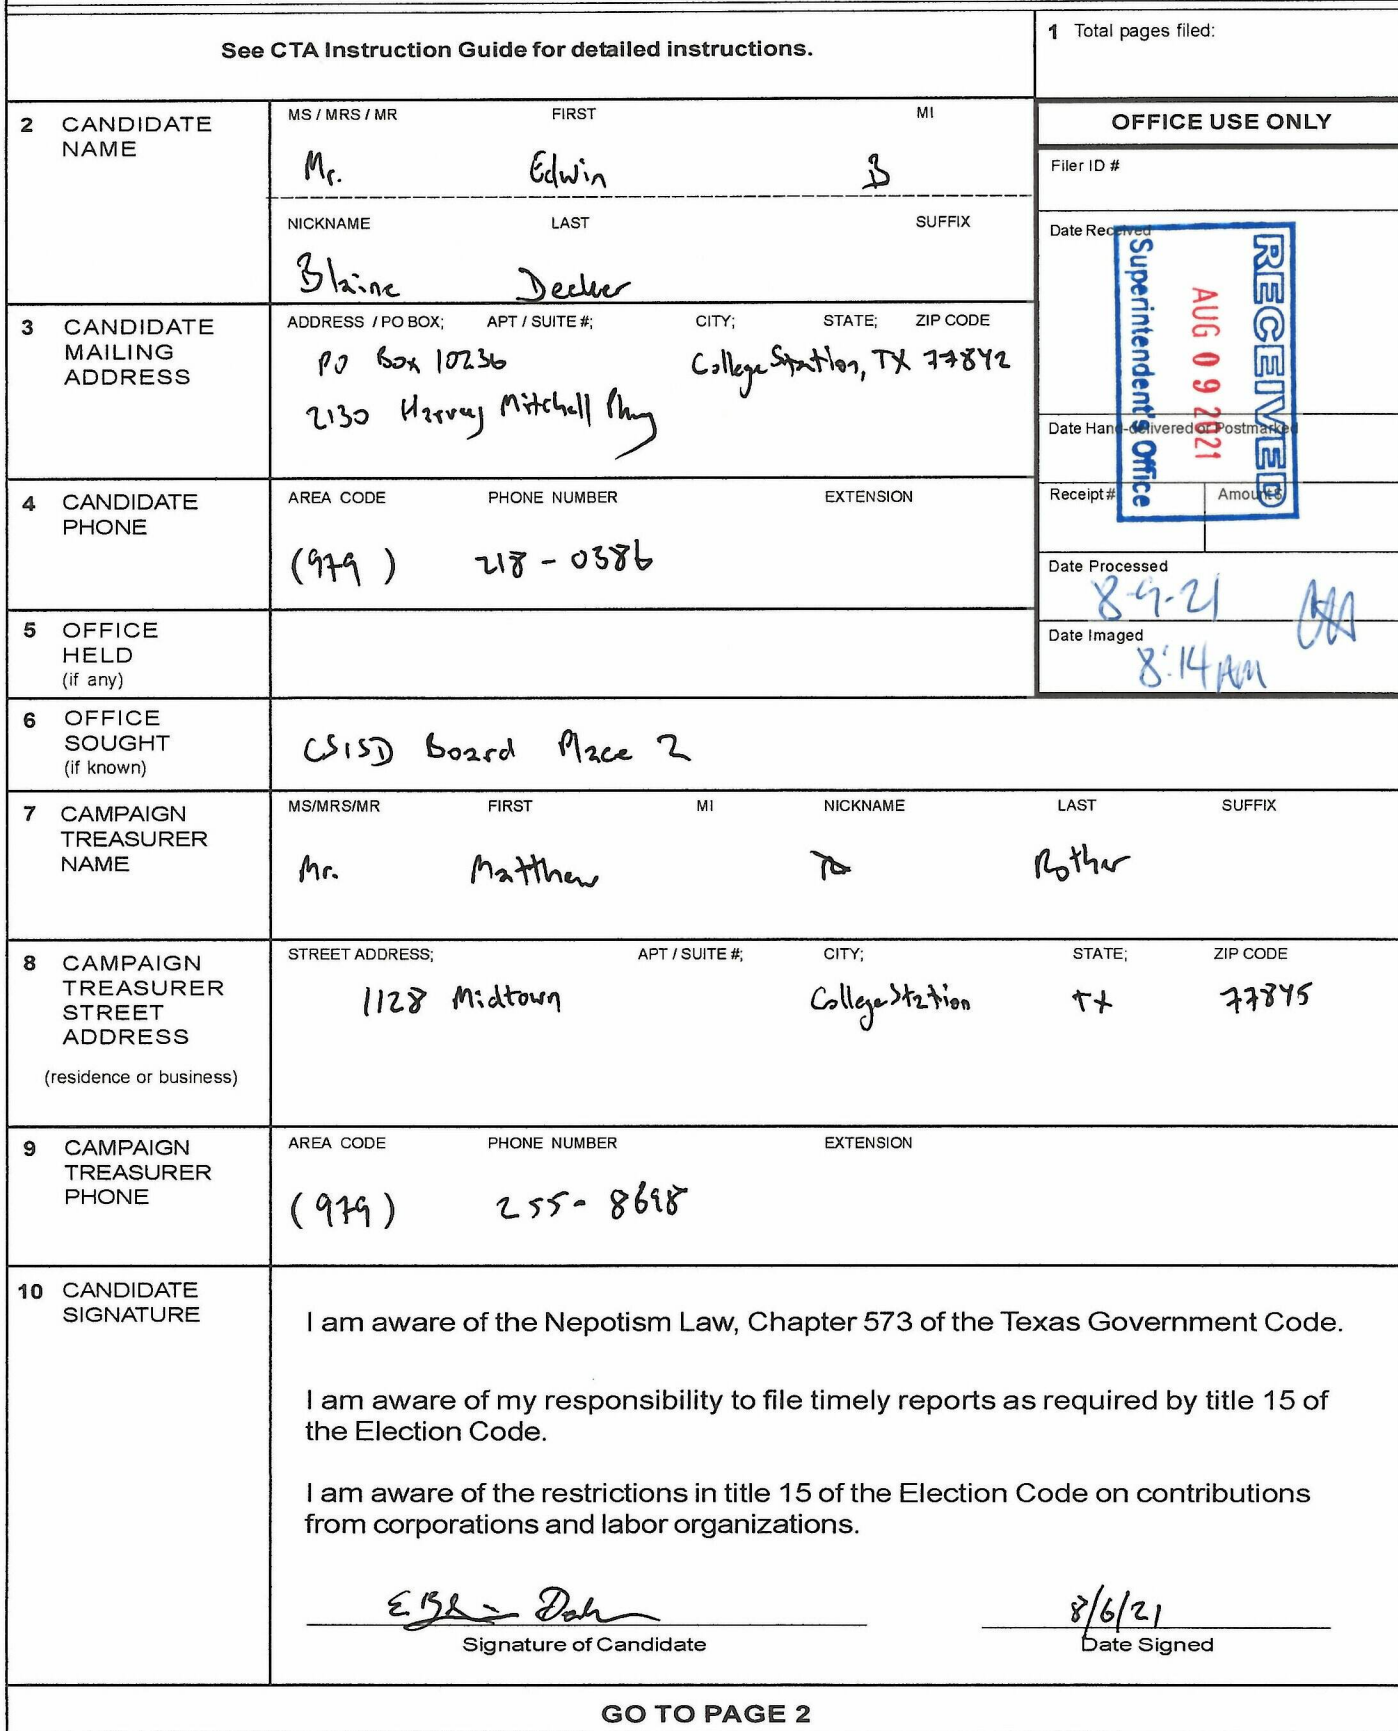 See CTA Instruction Guide for detailed instructions.
1 Total pages filed:
2 CANDIDATE NAME
MS / MRS / MR FIRST MI
Mr. Edwin B
NICKNAME LAST SUFFIX
Blaine Decker
OFFICE USE ONLY
Filer ID #
Date Received
RECEIVED
AUG 09 2021
Superintendent's Office
Date Hand-delivered or Postmarked
Receipt # Amount $
Date Processed
8-9-21
Date Imaged
8:14 AM
3 CANDIDATE MAILING ADDRESS
ADDRESS / PO BOX; APT / SUITE #; CITY; STATE; ZIP CODE
PO Box 10236 College Station, TX 77842
2130 Harvey Mitchell Pkwy
4 CANDIDATE PHONE
AREA CODE PHONE NUMBER EXTENSION
(979) 218-0386
5 OFFICE HELD (if any)
6 OFFICE SOUGHT (if known)
CSISD Board Place 2
7 CAMPAIGN TREASURER NAME
MS/MRS/MR FIRST MI NICKNAME LAST SUFFIX
Mr. Matthew Rother
8 CAMPAIGN TREASURER STREET ADDRESS
(residence or business)
STREET ADDRESS; APT / SUITE #; CITY; STATE; ZIP CODE
1128 Midtown College Station TX 77845
9 CAMPAIGN TREASURER PHONE
AREA CODE PHONE NUMBER EXTENSION
(979) 255-8698
10 CANDIDATE SIGNATURE
I am aware of the Nepotism Law, Chapter 573 of the Texas Government Code.
I am aware of my responsibility to file timely reports as required by title 15 of
the Election Code.
I am aware of the restrictions in title 15 of the Election Code on contributions
from corporations and labor organizations.
8/6/21
Signature of Candidate Date Signed
GO TO PAGE 2